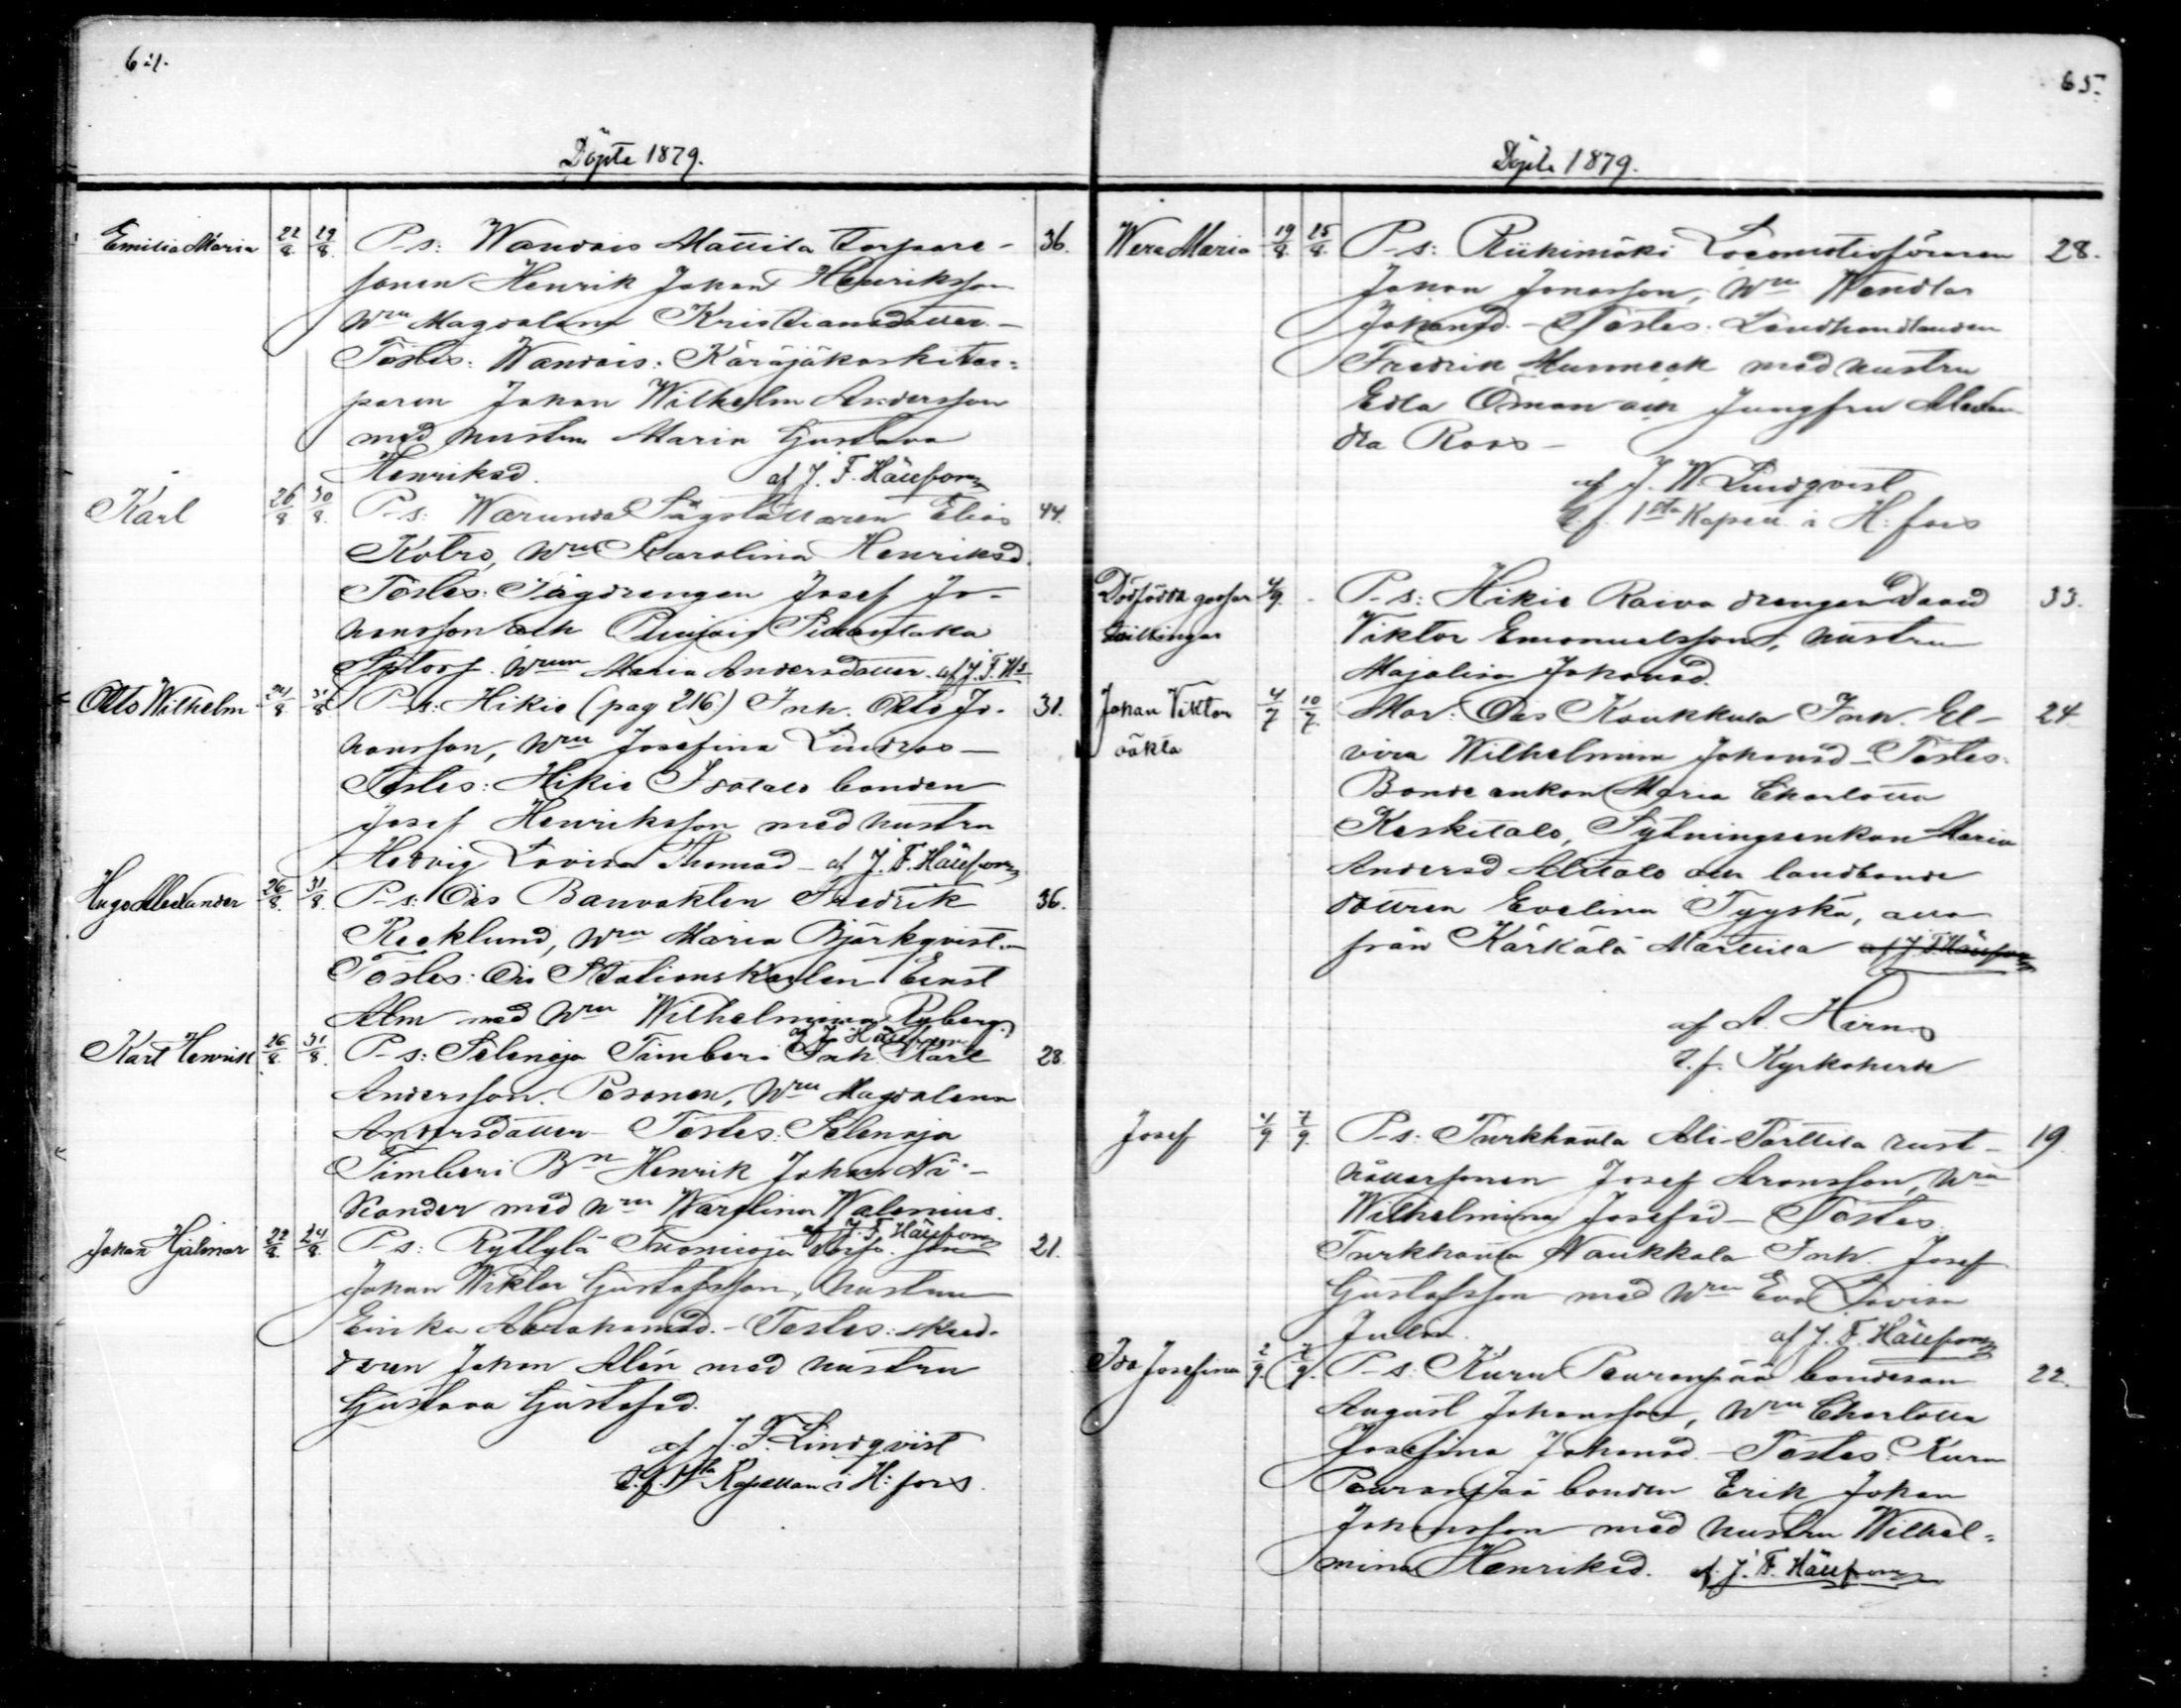 64.
Döpte 1879.
Emilia Maria 22/8 29/8 P-s: Wandais Mattila torpare- 36.
sonen Henrik Johan Henriksson
Wru Magdalena Kristiansdotter.-
Testes: Wandais: Käräjäkoski tor=
paren Johan Wilhelm Andersson
med hustru Maria Gustava
Henriksd. af J. F. Hällfors
Karl 26/8 30/8 P-s: Warunda Elias 44.
Wru Karolina Henriksd.
Testes: Josef Jo-
hansson och
Wrun Maria Andersdotter. af J. F. Hs
Otto Wilhelm 24/8 31/8 P-s: Hikie (pag 216) Inh. Otto Jo- 31.
hansson, Wru Josefina Lindroos-
Testes: Hikie bonden
Josef Henriksson med hustru
Hedvig Lovisa Thomasd- af J. F. Hällfors
Hugo Alexander 26/8 31/8 P-s: Ois Banvakten Fredrik 36.
Recklund, Wru Maria Björkqvist.-
Testes: Ois Stationskarlen Ernst
Alm med Wru Wilhelmina Ryberg.
af J. F. Hällfors
Karl Henrik 26/8 31/8 P-s: Selenoja Timberi Inh. Karl 28.
Andersson Posonen, Wru Magdalena
Andersdotter- Testes: Selenoja
Timberi Bn Henrik Johan Ni-
kander med Wru Walenius.
af J. F. Hällfors
Johan Hjalmar 22/8 24/8 P-s: Ryttylä torp. 21.
Johan Wiktor Gustafsson, hustrun
Erika Abrahamsd.- Testes: skräd-
daren Johan Alén med hustru
Gustava Gustafsd.
af J. F. Lindqvist
t.f. 1sta Kapellan i H:fors.
65.
Döpte 1879.
Wera Maria 19/8 25/8 P-s: Riihimäki Locomotivföraren 28.
Johan Jonasson, Wru Wendla
Johansd.- Testes: Landhandlanden
Fredrik Munneck med hustru
Edla Öman och Jungfru Alexan
dra Roos-
af J. W. Lindqvist
t.f. 1sta Kapell. i H:fors
Dödfödda gossar 4/9. P-s: Hikie Raiva drengen David 33.
tvillingar Viktor Emanuelsson, hustru
Majalisa Johansd.
Johan Viktor 4/7 10/7 Mor: Ois Koukkula Inh. El- 24
oäkta vira Wilhelmina Johansd- Testes:
Bondeenkan Maria Charlotta
Keskitalo, Sytningsenkan Maria
Andersd Alitalo och landbonde
dottren Evelina Tyyskä, alla
från Kärkölä Marttila af J. F. Hällfors
af A. Hirn
t.f. Kyrkoherde
Josef 4/9 7/9. P-s: Turkhauta Ali-Torttila rust- 19.
hållarsonen Josef Aronsson, Wru
Wilhelmina Josefsd- Testes:
Turkhauta Naukkala Inh. Josef
Gustafsson med Wru Eva Lovisa
Julin. af J. F. Hällfors
Ida Josefina 2/9. 7/9. P-s: Kuru Peuranpää bondeson 22.
August Johansson, Wru Charlotta
Josefina Johansd.- Testes: Kuru
Peuranpää bonden Erik Johan
Johansson med hustru Wilhel=
mina Henriksd. af J. F. Hällfors